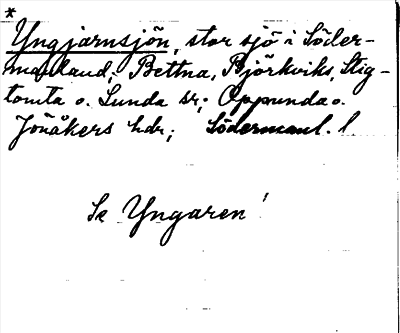 *
Yngjarnsjön, stor sjö i Söder-
manland; Bettna, Björkviks, Stig-
tomta o. Lunda sr; Oppunda o.
Jönåkers hdr; Södermanl. l
Se Yngaren!